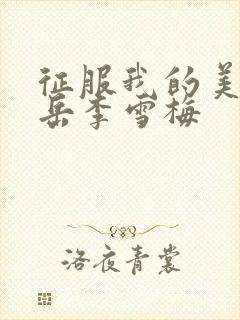 征服我的美
岳李雪梅
洛夜青裳